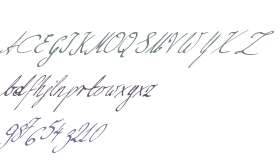 ACEGIKMOQSUVWYXZ
bdfhjlnprtowxyxa
9876543210